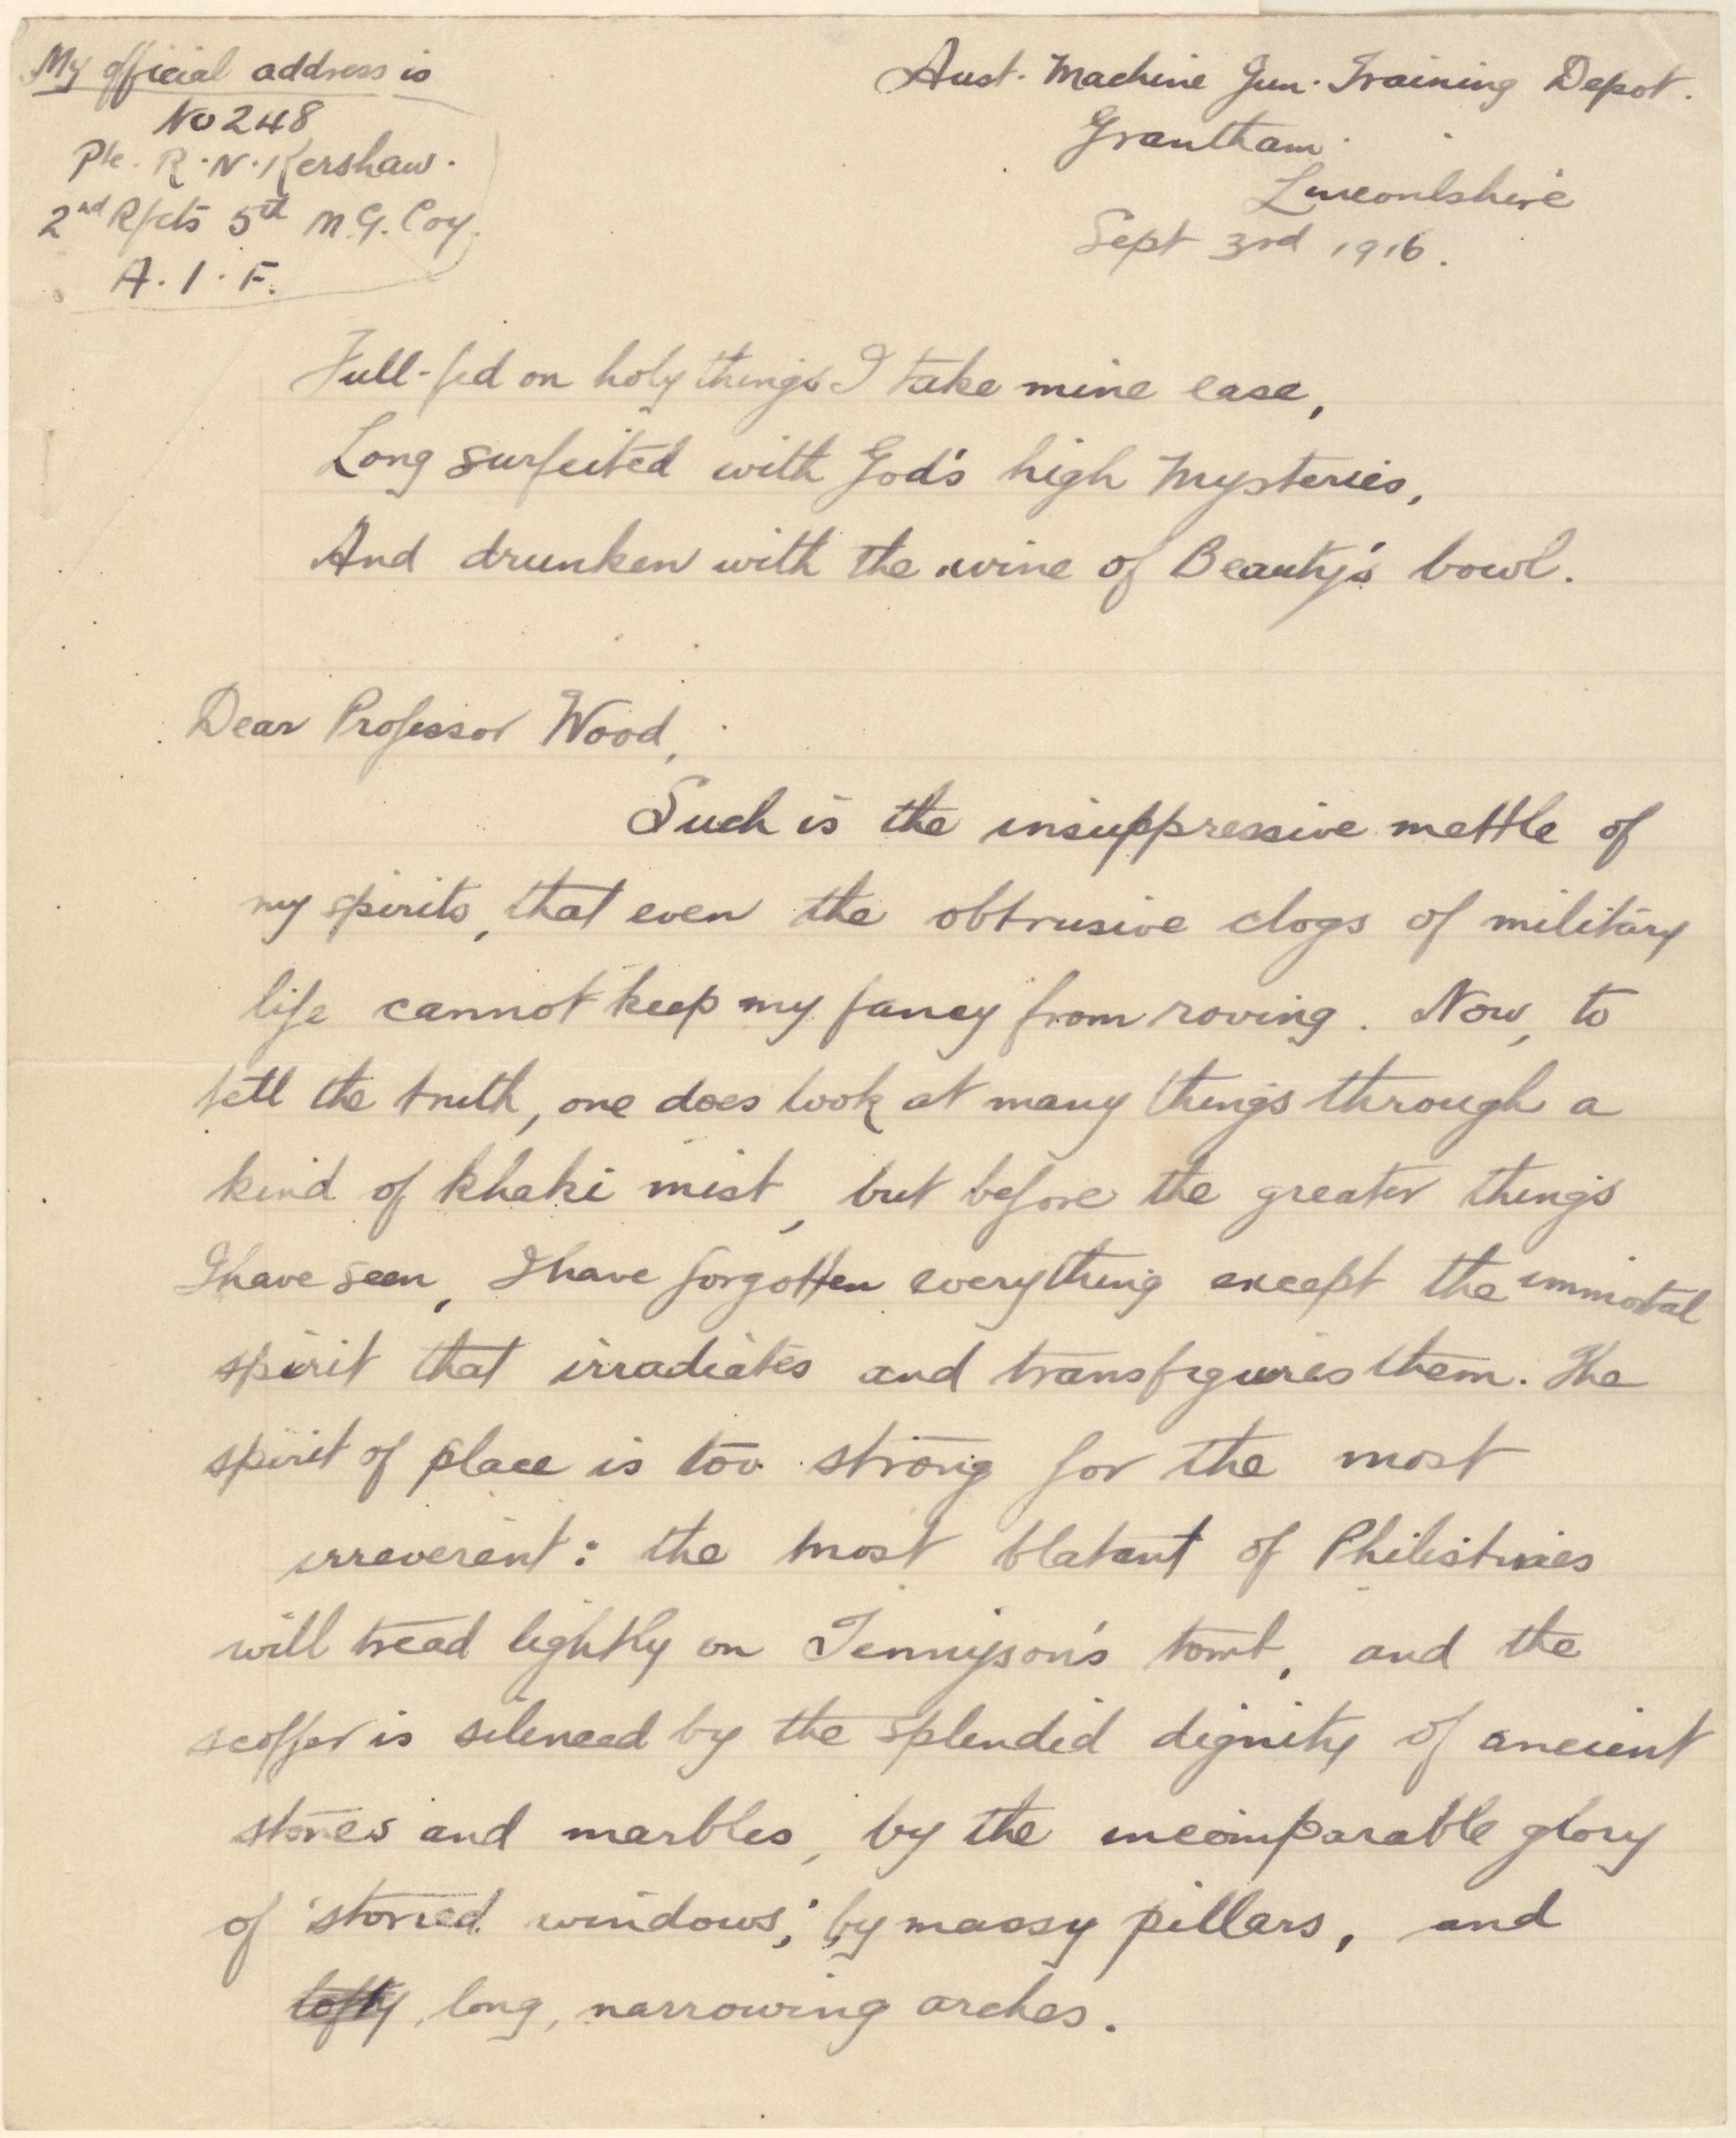 My official address is
No 248
Pte. R. N. Kershaw.
2nd Rfcts 5th M.G. Coy.
A. I. F.
Aust. Machine Gun. Training Depot.
Grantham.
Lincolnshire
Sept 3rd 1916.
Full-fed on holy things I take mine ease,
Long surfeited with God's high Mysteries,
And drunken with the wine of Beauty's bowl.
Dear Professor Wood,
Such is the insuppressive mettle of
my spirits, that even the obtrusive clogs of military
life cannot keep my fancy from roving. Now, to
tell the truth, one does look at many things through a
kind of khaki mist, but before the greater things
I have seen, I have forgotten everything except the immortal
spirit that irradiates and transfigures them. The
spirit of place is too strong for the most
irreverent: the most blatant of Philistines
will tread lightly on Tennyson's tomb, and the
scoffer is silenced by the splendid dignity of ancient
stones and marbles, by the incomparable glory
of 'storied windows,' by massy pillars, and
lofty, long, narrowing arches.